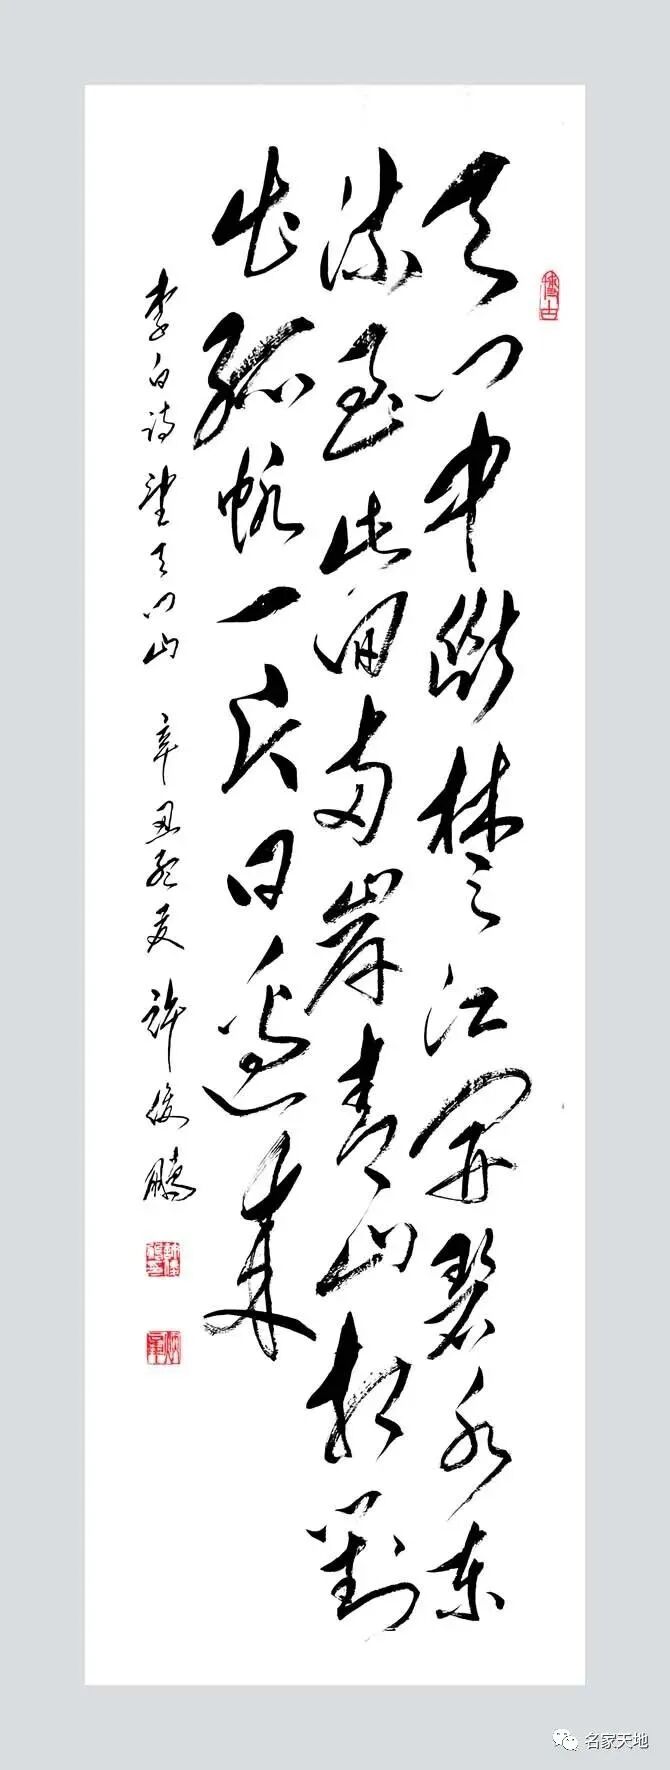 博古
天门中斷楚江開碧水东
流至此回两岸青山相對
出孤帆一片日邊来
李白诗望天门山 辛丑初夏 许俊鹏
名家天地